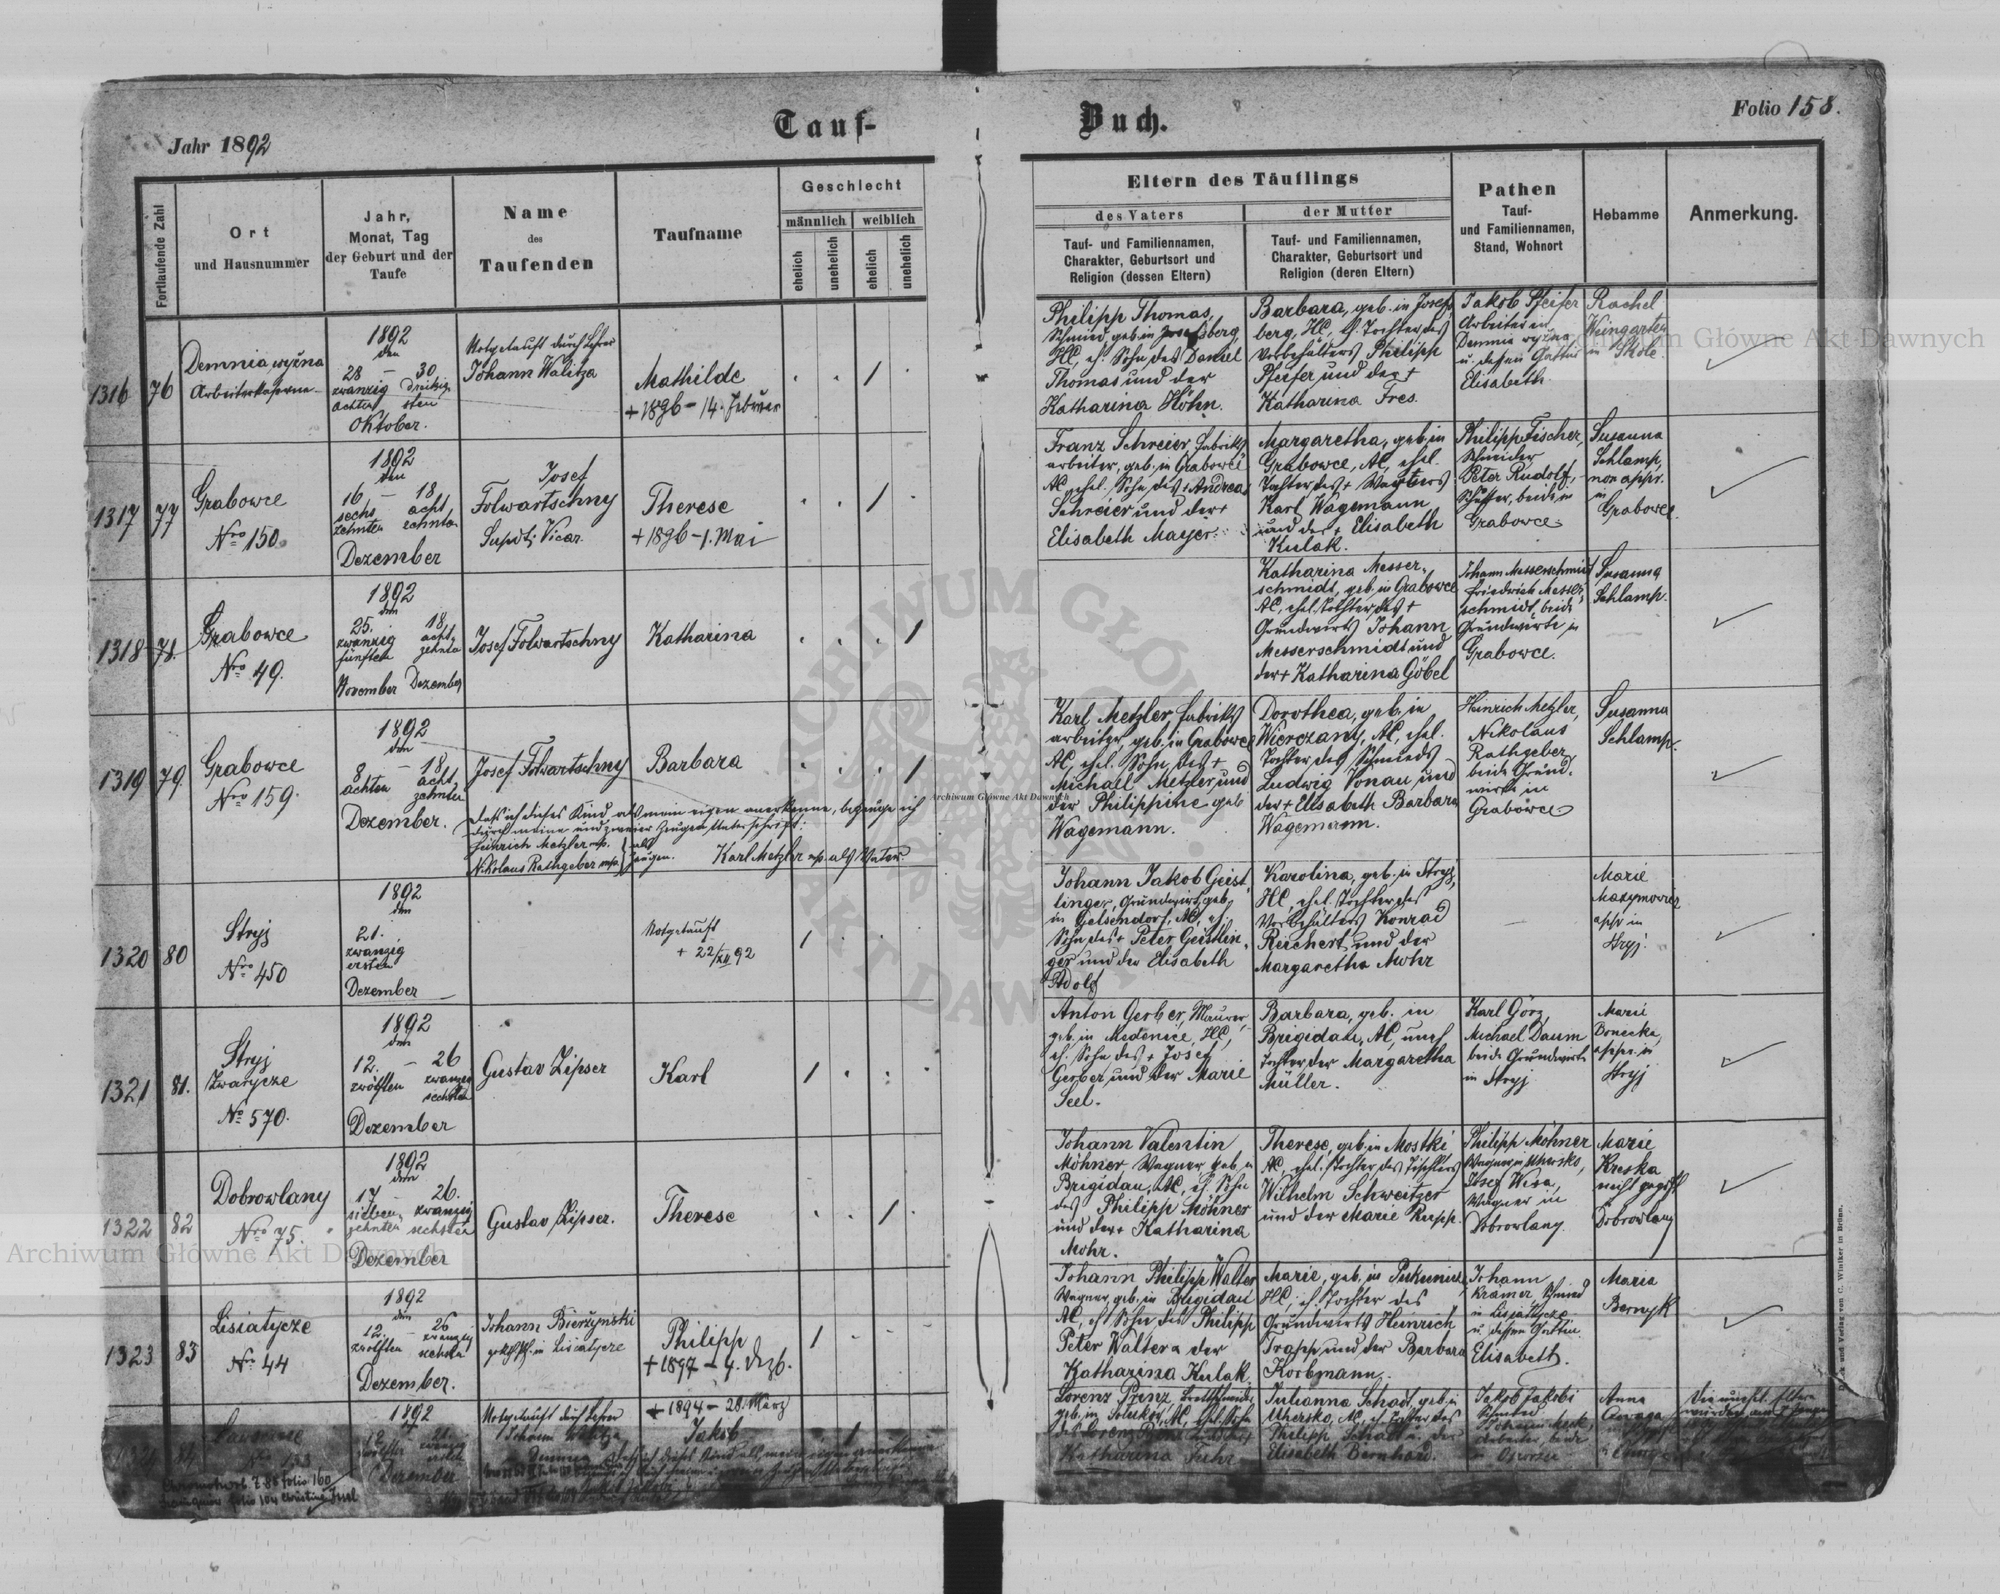 Jahr 1892
Tauf-
Buch.
Folio 158.
Fortlaufende Zahl
Ort
und Hausnummer
Jahr,
Monat, Tag
der Geburt und der
Taufe
Name
des
Taufenden
Taufname
Geschlecht
männlich
weiblich
ehelich
unehelich
ehelich
unehelich
Eltern des Täuflings
des Vaters
der Mutter
Tauf- und Familiennamen,
Charakter, Geburtsort und
Religion (dessen Eltern)
Tauf- und Familiennamen,
Charakter, Geburtsort und
Religion (deren Eltern)
Pathen
Tauf-
und Familiennamen,
Stand, Wohnort
Hebamme
Anmerkung.
1316
76
Demnia wyżna
Arbeiterkaserne
1892
den
28 – 30.
zwanzig dreißig
achten sten
Oktober.
Notgetauft durch Lehrer
Johann Walitza
Mathilde
+ 1896 – 14. Februar
Philipp Thomas,
Schmied, geb. in Josefsberg,
HC, eh. Sohn des Daniel
Thomas und der
Katharina Höhn.
Barbara, geb. in Josefs
berg, HC, Tochter des
Vorbehälters Philipp
Pfeifer und der +
Katharina Fres.
Jakob Pfeifer
Arbeiter in
Demnia wyżna
u. dessen Gattin
Elisabeth
Rachel
Weingarten
in Skole.
1317
77
Grabowce
Nro 150.
1892
den
16 – 18
sechs acht
zehnten zehnten
Dezember
Josef
Folwartschny
Supdt. Vicar.
Therese
+ 1896 – 1. Mai
Franz Schreier, Fabriks
arbeiter, geb. in Grabowce
AC, ehel. Sohn des + Andreas
Schreier und der +
Elisabeth Mayer.
Margaretha, geb. in
Grabowce, AC, ehel.
Tochter des +
Karl Wagemann
und der + Elisabeth
Kulak.
Philipp Fischer,
Schneider
Peter Rudolf,
Schuster, beide in
Grabowce.
Susanna
Schlamp,
non appr.
in
Grabowce.
1318
78.
Grabowce
Nro 49.
1892
den
25. 18.
zwanzig acht
fünften zehnten
November Dezember
Josef Folwartschny
Katharina
Katharina Messer-
schmidt, geb. in Grabowce
AC, ehel. Tochter des +
Grundwirts Johann
Messerschmidt und
der + Katharina Göbel
Johann Messerschmidt
Friedrich Messer-
schmidt, beide
Grundwirte in
Grabowce.
Susanna
Schlamp.
1319
79.
Grabowce
Nro 159.
1892
den
8 – 18.
achten acht
zehnten
Dezember.
Josef Folwartschny
Barbara
Daß ich dieses Kind als mein eigen anerkenne, bezeuge ich
durch meine und zweier Zeugen Unterschrift:
Heinrich Metzler mp. } als
Nikolaus Rathgeber mp. } Zeugen. Karl Metzler mp. als Vater.
Karl Metzler, Fabriks
arbeiter, geb. in Grabowce
AC, ehel. Sohn des +
Michael Metzler und
der Philippine geb.
Wagemann.
Dorothea, geb. in
Wierczany, AC, ehel.
Tochter des Schmieds
Ludwig Vonau und
der + Elisabeth Barbara
Wagemann.
Heinrich Metzler,
Nikolaus
Rathgeber
beide Grund-
wirte in
Grabowce
Susanna
Schlamp.
1320
80
Stryj
Nro 450
1892
den
21.
zwanzig
ersten
Dezember
Notgetauft
+ 22/XII 92
Johann Jakob Geist
linger, Grundwirt, geb.
in Gelsendorf, AC, eh.
Sohn des + Peter Geistlin
ger und der Elisabeth
Adolf
Karolina, geb. in Stryj,
HC, ehel. Tochter des
Vorbehälters Konrad
Reichert und der
Margaretha Mohr
Marie
appr. in
Stryj.
1321
81.
Stryj
Zwarycze
No 570.
1892
den
12. – 26
zwölften zwanzig
sechsten
Dezember
Gustav Zipser
Karl
Anton Gerber, Maurer,
geb. in Medenice, HC,
eh. Sohn des + Josef
Gerber und der Marie
Seel.
Barbara, geb. in
Brigidau, AC, uneh.
Tochter der Margaretha
Müller.
Karl Görz,
Michael Daum
beide Grundwirte
in Stryj
Marie
Bonecka,
appr. in
Stryj
1322
82
Dobrowlany
Nro 75.
1892
den
17 – 26.
sieben zwanzig
zehnten sechsten
Dezember
Gustav Zipser.
Therese
Johann Valentin
Möhner, Wagner, geb. in
Brigidau, AC, eh. Sohn
des Philipp Möhner
und der + Katharina
Mohr.
Therese, geb. in Mostki
AC, ehel. Tochter des Tischlers
Wilhelm Schweitzer
und der Marie Rupp.
Philipp Möhner
Wagner in Uhersko,
Josef Wisa,
Wagner in
Dobrowlany.
Marie
Kreska
nicht geprüft
Dobrowlany
1323
83
Lisiatycze
No 44
1892
den
12. – 26
zwölften zwanzig
sechsten
Dezember.
Johann Bierzynski
in Lisiatycze
Philipp
+ 1897 – 4. Dezb.
Johann Philipp Walter
Wagner, geb. in Brigidau
AC, eh. Sohn des Philipp
Peter Walter u. der
Katharina Kulak.
Marie, geb. in
HC, eh. Tochter des
Grundwirts Heinrich
Trapp und der Barbara
Korbmann.
Johann
Kramer, Schmied
in Lisiatycze
u. dessen Gattin
Elisabeth.
Maria
Bernyk
84
1892
Dezember
Notgetauft durch Lehrer
Johann Walitza
+ 1894 – 28. März
Jakob
Lorenz Prinz,
geb. in
Katharina Fuhr
Julianna Schadt, geb. in
Uhersko, AC, eh. Tochter des
Philipp Schadt u. der
Elisabeth Bernhard.
Jakob Jakobi
Anna
Die unehl. Eltern
folio 160
folio 104 Christine Juel
Druck und Verlag von C. Winiker in Brünn.
Archiwum Główne Akt Dawnych
Archiwum Główne Akt Dawnych
Archiwum Główne Akt Dawnych
ARCHIWUM GŁÓWNE AKT DAWNYCH